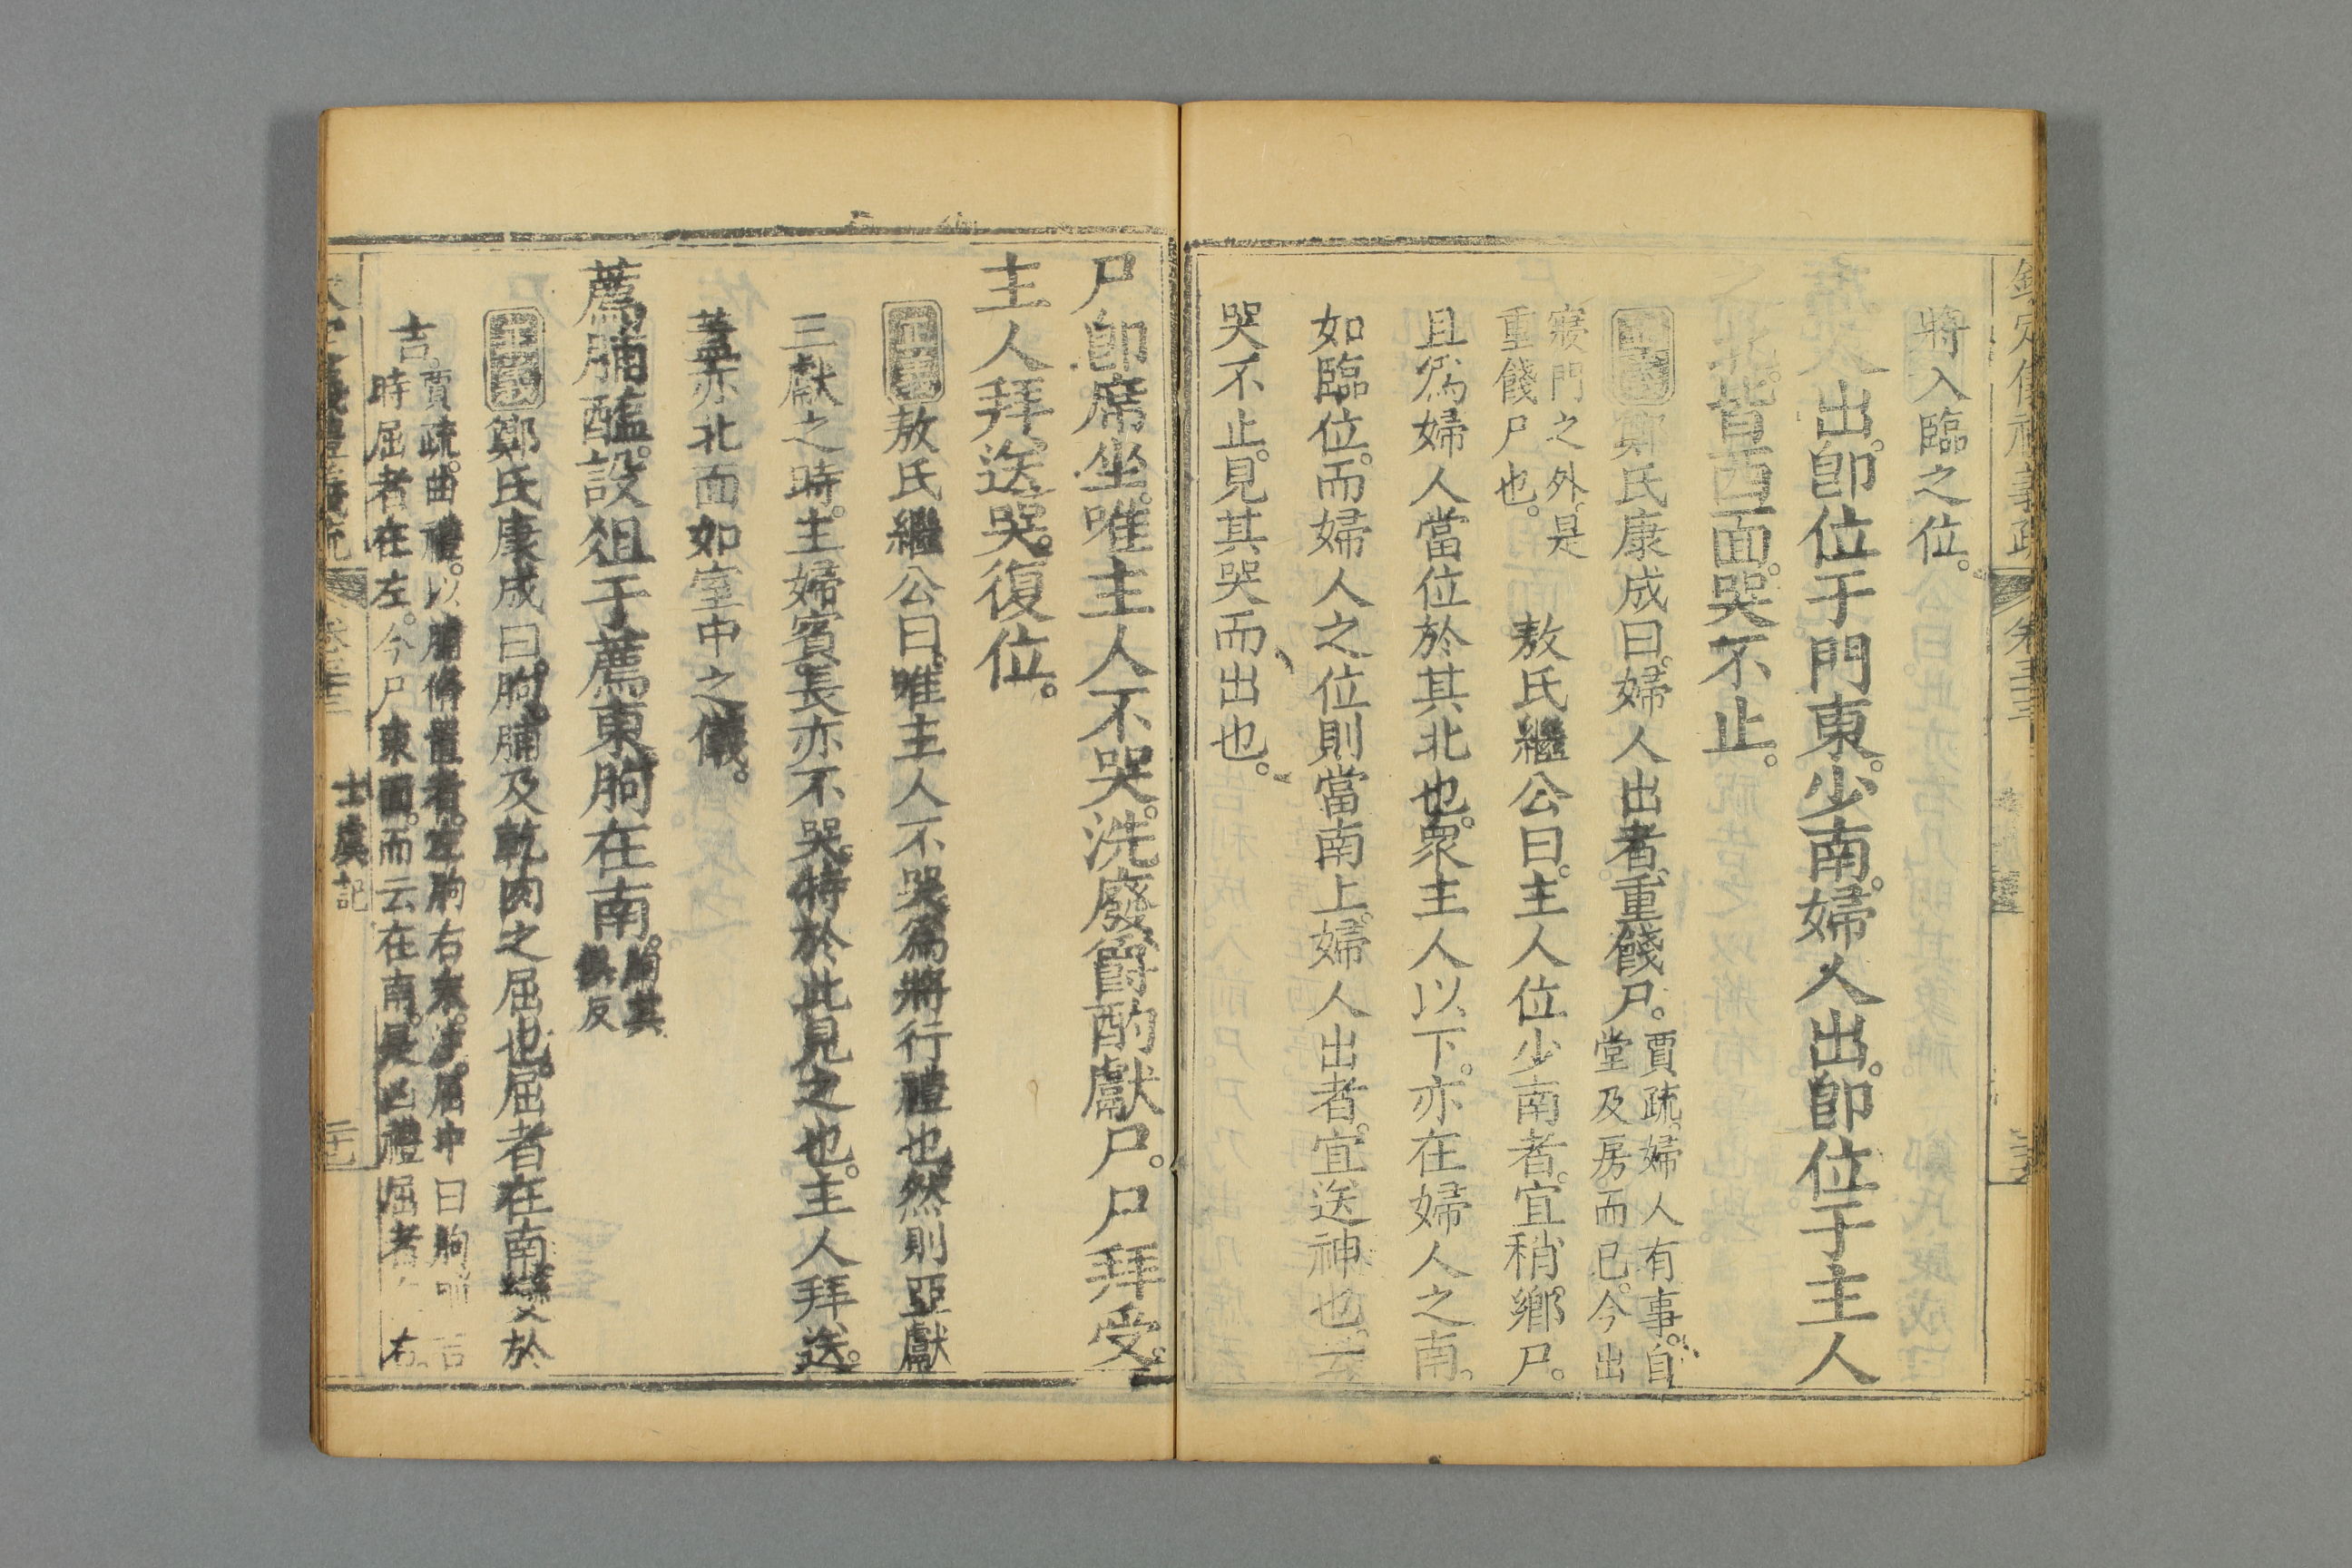 欽定儀禮義疏 卷三十三
將入臨之位。
丈夫出。卽位于門東。少南。婦人出。卽位于主人
北。皆西面。哭不止。
正義鄭氏康成曰。婦人出者。重餞尸。賈疏。婦人有事。自
堂及房而已。今出
寢門之外。是
重餞尸也。
敖氏繼公曰。主人位少南者。宜稍鄉尸。
且爲婦人當位於其北也。衆主人以下。亦在婦人之南。
如臨位。而婦人之位則當南上。婦人出者。宜送神也。云
哭不止。見其哭而出也。
尸卽席坐。唯主人不哭。洗廢爵。酌獻尸。尸拜受。
主人拜送。哭。復位。
正義敖氏繼公曰。唯主人不哭。爲將行禮也。然則亞獻
三獻之時。主婦賓長亦不哭。特於此見之也。主人拜送。
蓋亦北面如室中之儀。
薦脯醢。設俎于薦東。朐在南。朐其
俱反
正義鄭氏康成曰。朐。脯及乾肉之屈也。屈者在南。變於
吉。
賈疏。曲禮。以脯脩置者。左朐右末。屈中曰朐
時屈者在左。今尸東面。而云在南。是凶禮屈者右。
士虞記